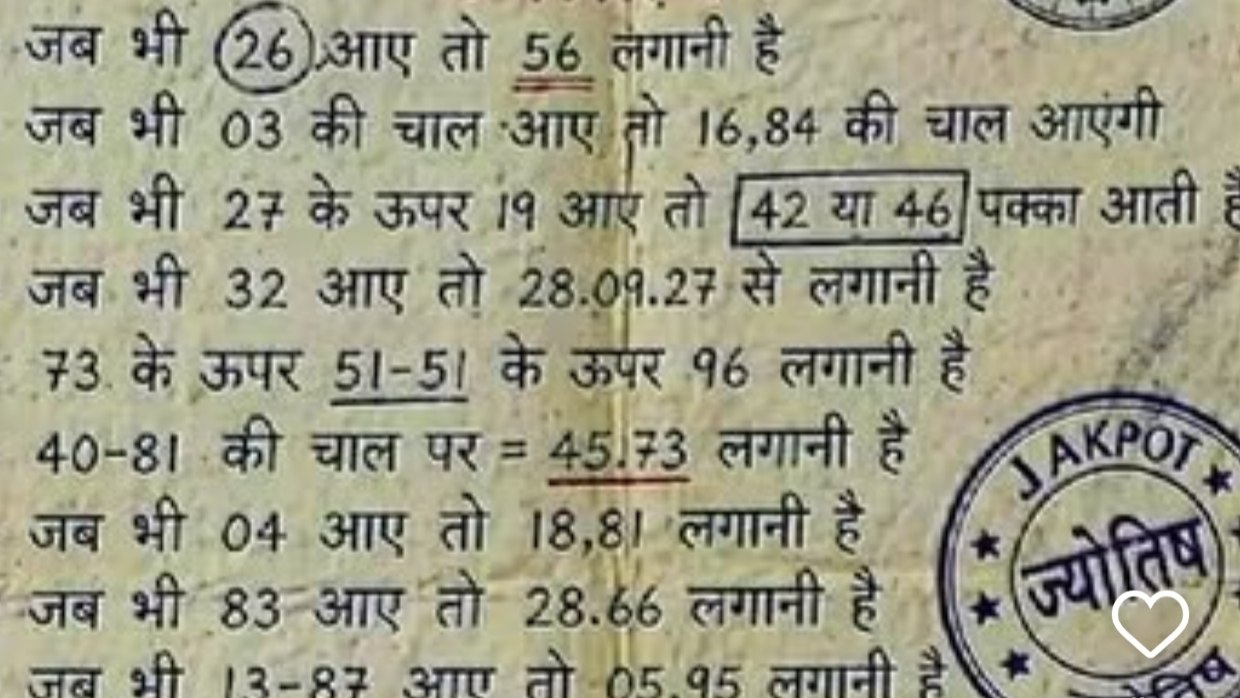 जब भी 26 आए तो 56 लगानी है
जब भी 03 की चाल आए तो 16,84 की चाल आएंगी
जब भी 27 के ऊपर 19 आए तो 42 या 46 पक्का आती है
जब भी 32 आए तो 28.09.27 से लगानी है
73 के ऊपर 51-51 के ऊपर 96 लगानी है
40-81 की चाल पर = 45.73 लगानी है
जब भी 04 आए तो 18,81 लगानी है
जब भी 83 आए तो 28.66 लगानी है
जब भी 13-87 आए तो 05.95 लगानी है
JAKPOT
ज्योतिष
ज्योतिष